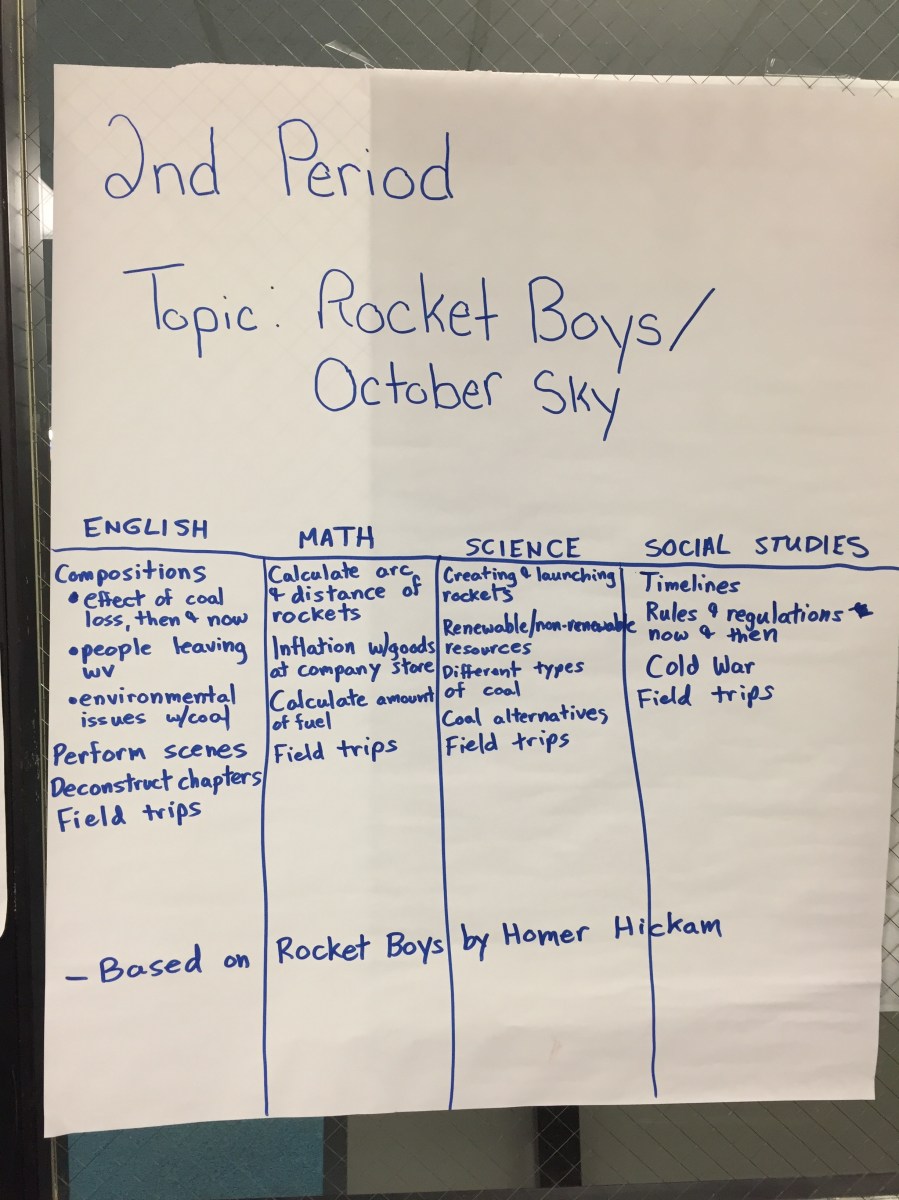 2nd Period
Topic: Rocket Boys/
October Sky
ENGLISH
Compositions
• effect of coal
loss, then & now
• people leaving
WV
• environmental
issues w/coal
Perform scenes
Deconstruct chapters
Field trips
MATH
Calculate arc
& distance of
rockets
Inflation w/goods
at company store
Calculate amount
of fuel
Field trips
SCIENCE
Creating & launching
rockets
Renewable/non-renewable
resources
Different types
of coal
Coal alternatives
Field trips
SOCIAL STUDIES
Timelines
Rules & regulations
now & then
Cold War
Field trips
– Based on Rocket Boys by Homer Hickam